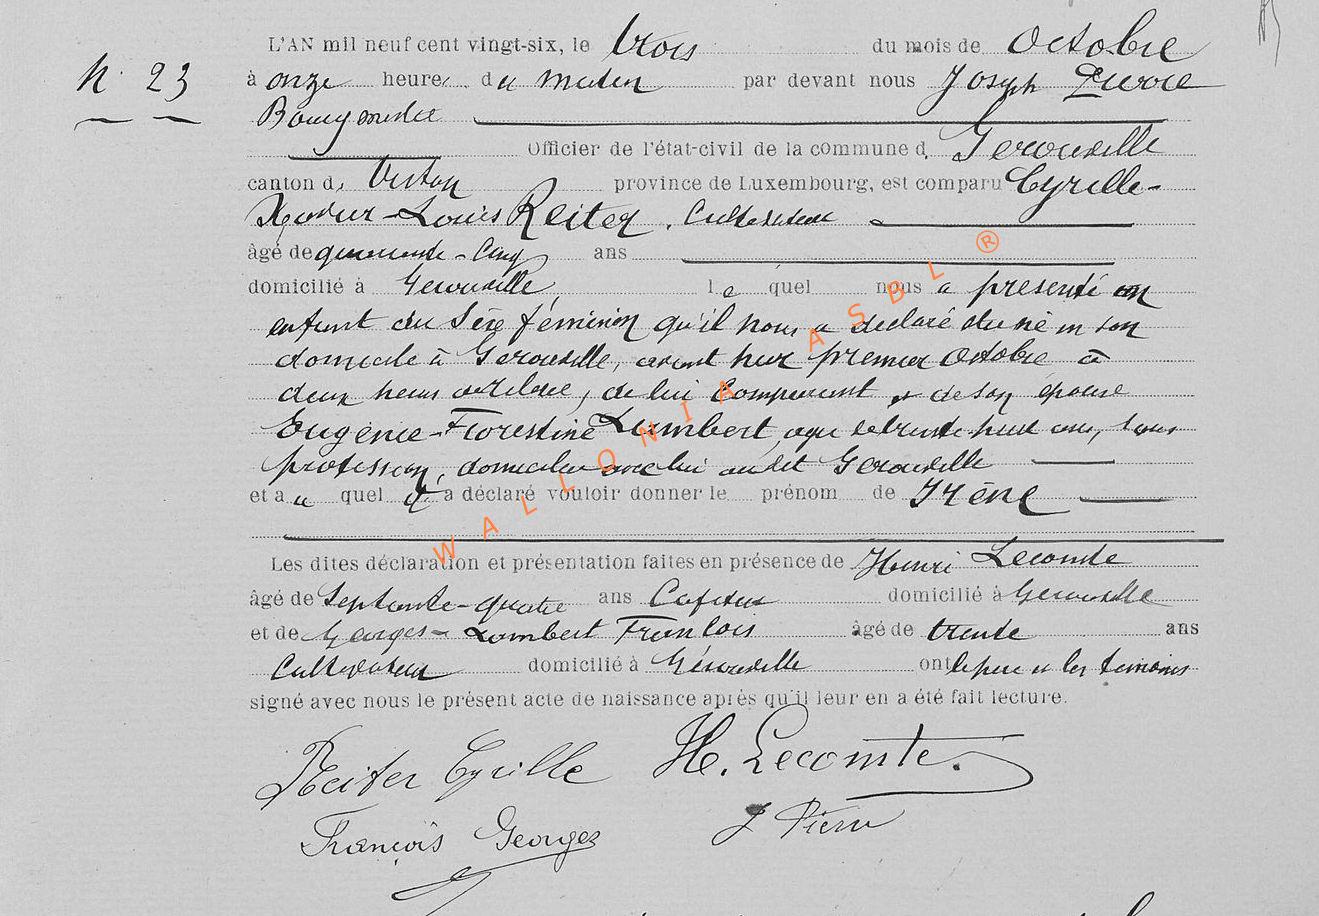 L'AN mil neuf cent vingt-six, le trois du mois de Octobre
N° 23
à onze heures du matin par devant nous Joseph Pierre
Bourgmestre
Officier de l'état-civil de la commune d. Gerouville
canton d. Virton province de Luxembourg, est comparu Cyrille-
Xavier-Louis Reiter, Cultivateur
âgé de quarante-cinq ans
domicilié à Gerouville le quel nous a présenté un
enfant du sexe féminin qu'il nous a declaré être né en son
domicile à Gerouville, avant hier premier Octobre à
deux heures de lui Comparant et de son épouse
Eugénie-Florestine Lambert, agée de trente huit ans, sans
profession, domiciliée avec lui audit Gerouville
et au quel il a déclaré vouloir donner le prénom de Irène
Les dites déclaration et présentation faites en présence de Henri Lecomte
âgé de Septante-quatre ans domicilié à Gerouville
et de Georges-Lambert François âgé de trente ans
Cultivateur domicilié à Gérouville ont le père et les temoins
signé avec nous le présent acte de naissance après qu'il leur en a été fait lecture.
Reiter Cyrille H. Lecomte.
François Georges J Pierre
WALLONIA ASBL ®